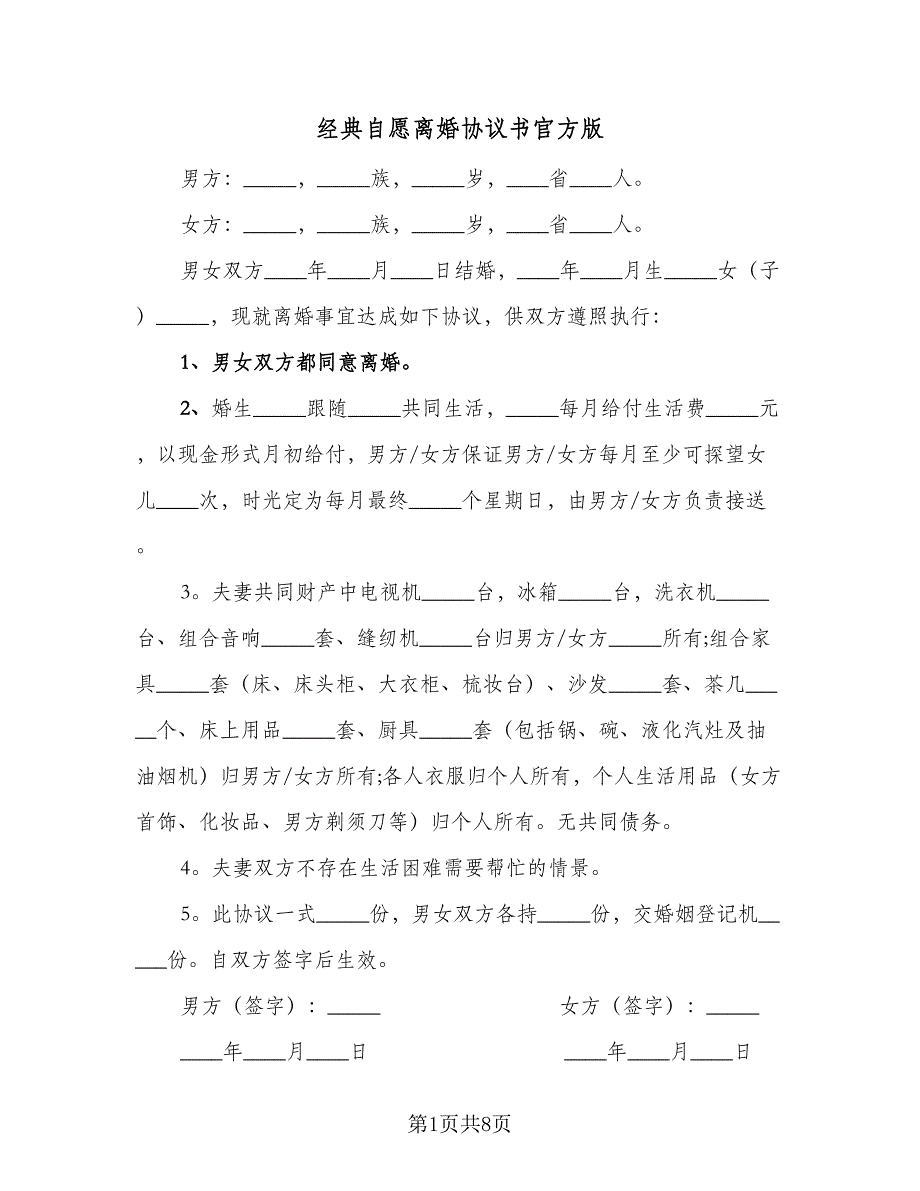 经典自愿离婚协议书官方版
男方：_____，_____族，_____岁，____省____人。
女方：_____，_____族，_____岁，____省____人。
男女双方____年____月____日结婚，____年____月生_____女（子
）_____，现就离婚事宜达成如下协议，供双方遵照执行：
1、男女双方都同意离婚。
2、婚生_____跟随_____共同生活，_____每月给付生活费_____元
，以现金形式月初给付，男方/女方保证男方/女方每月至少可探望女
儿____次，时光定为每月最终_____个星期日，由男方/女方负责接送
。
3。夫妻共同财产中电视机_____台，冰箱_____台，洗衣机_____
台、组合音响_____套、缝纫机_____台归男方/女方_____所有;组合家
具_____套（床、床头柜、大衣柜、梳妆台）、沙发_____套、茶几___
__个、床上用品_____套、厨具_____套（包括锅、碗、液化汽灶及抽
油烟机）归男方/女方所有;各人衣服归个人所有，个人生活用品（女方
首饰、化妆品、男方剃须刀等）归个人所有。无共同债务。
4。夫妻双方不存在生活困难需要帮忙的情景。
5。此协议一式_____份，男女双方各持_____份，交婚姻登记机__
___份。自双方签字后生效。
男方（签字）：_____ 女方（签字）：_____
____年____月____日 ____年____月____日
第1页共8页